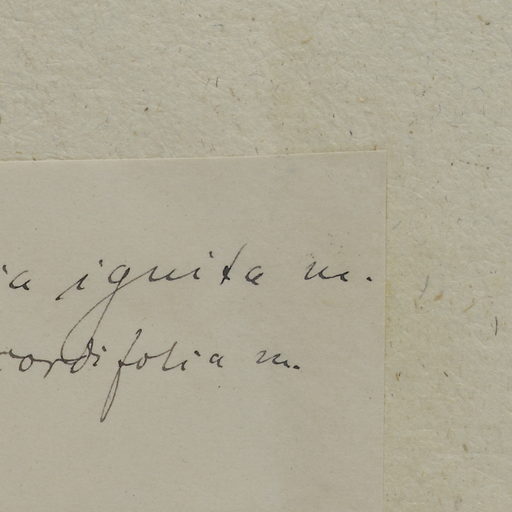 ia ignita m.
cordifolia m.